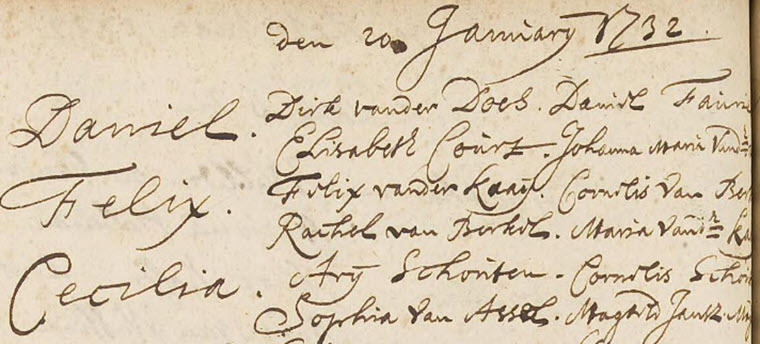 den 20 January 1732.
Daniel. Dirk vander Does. Daniel
Elisabeth Court. Johanna Maria Vandr
Felix. Felix vander Kaay. Cornelis Van
Rachel van Berkel. Maria Vandr
Cecilia. Ary Schouten. Cornelis
Sophia Van Assel. Magteld Jansz.